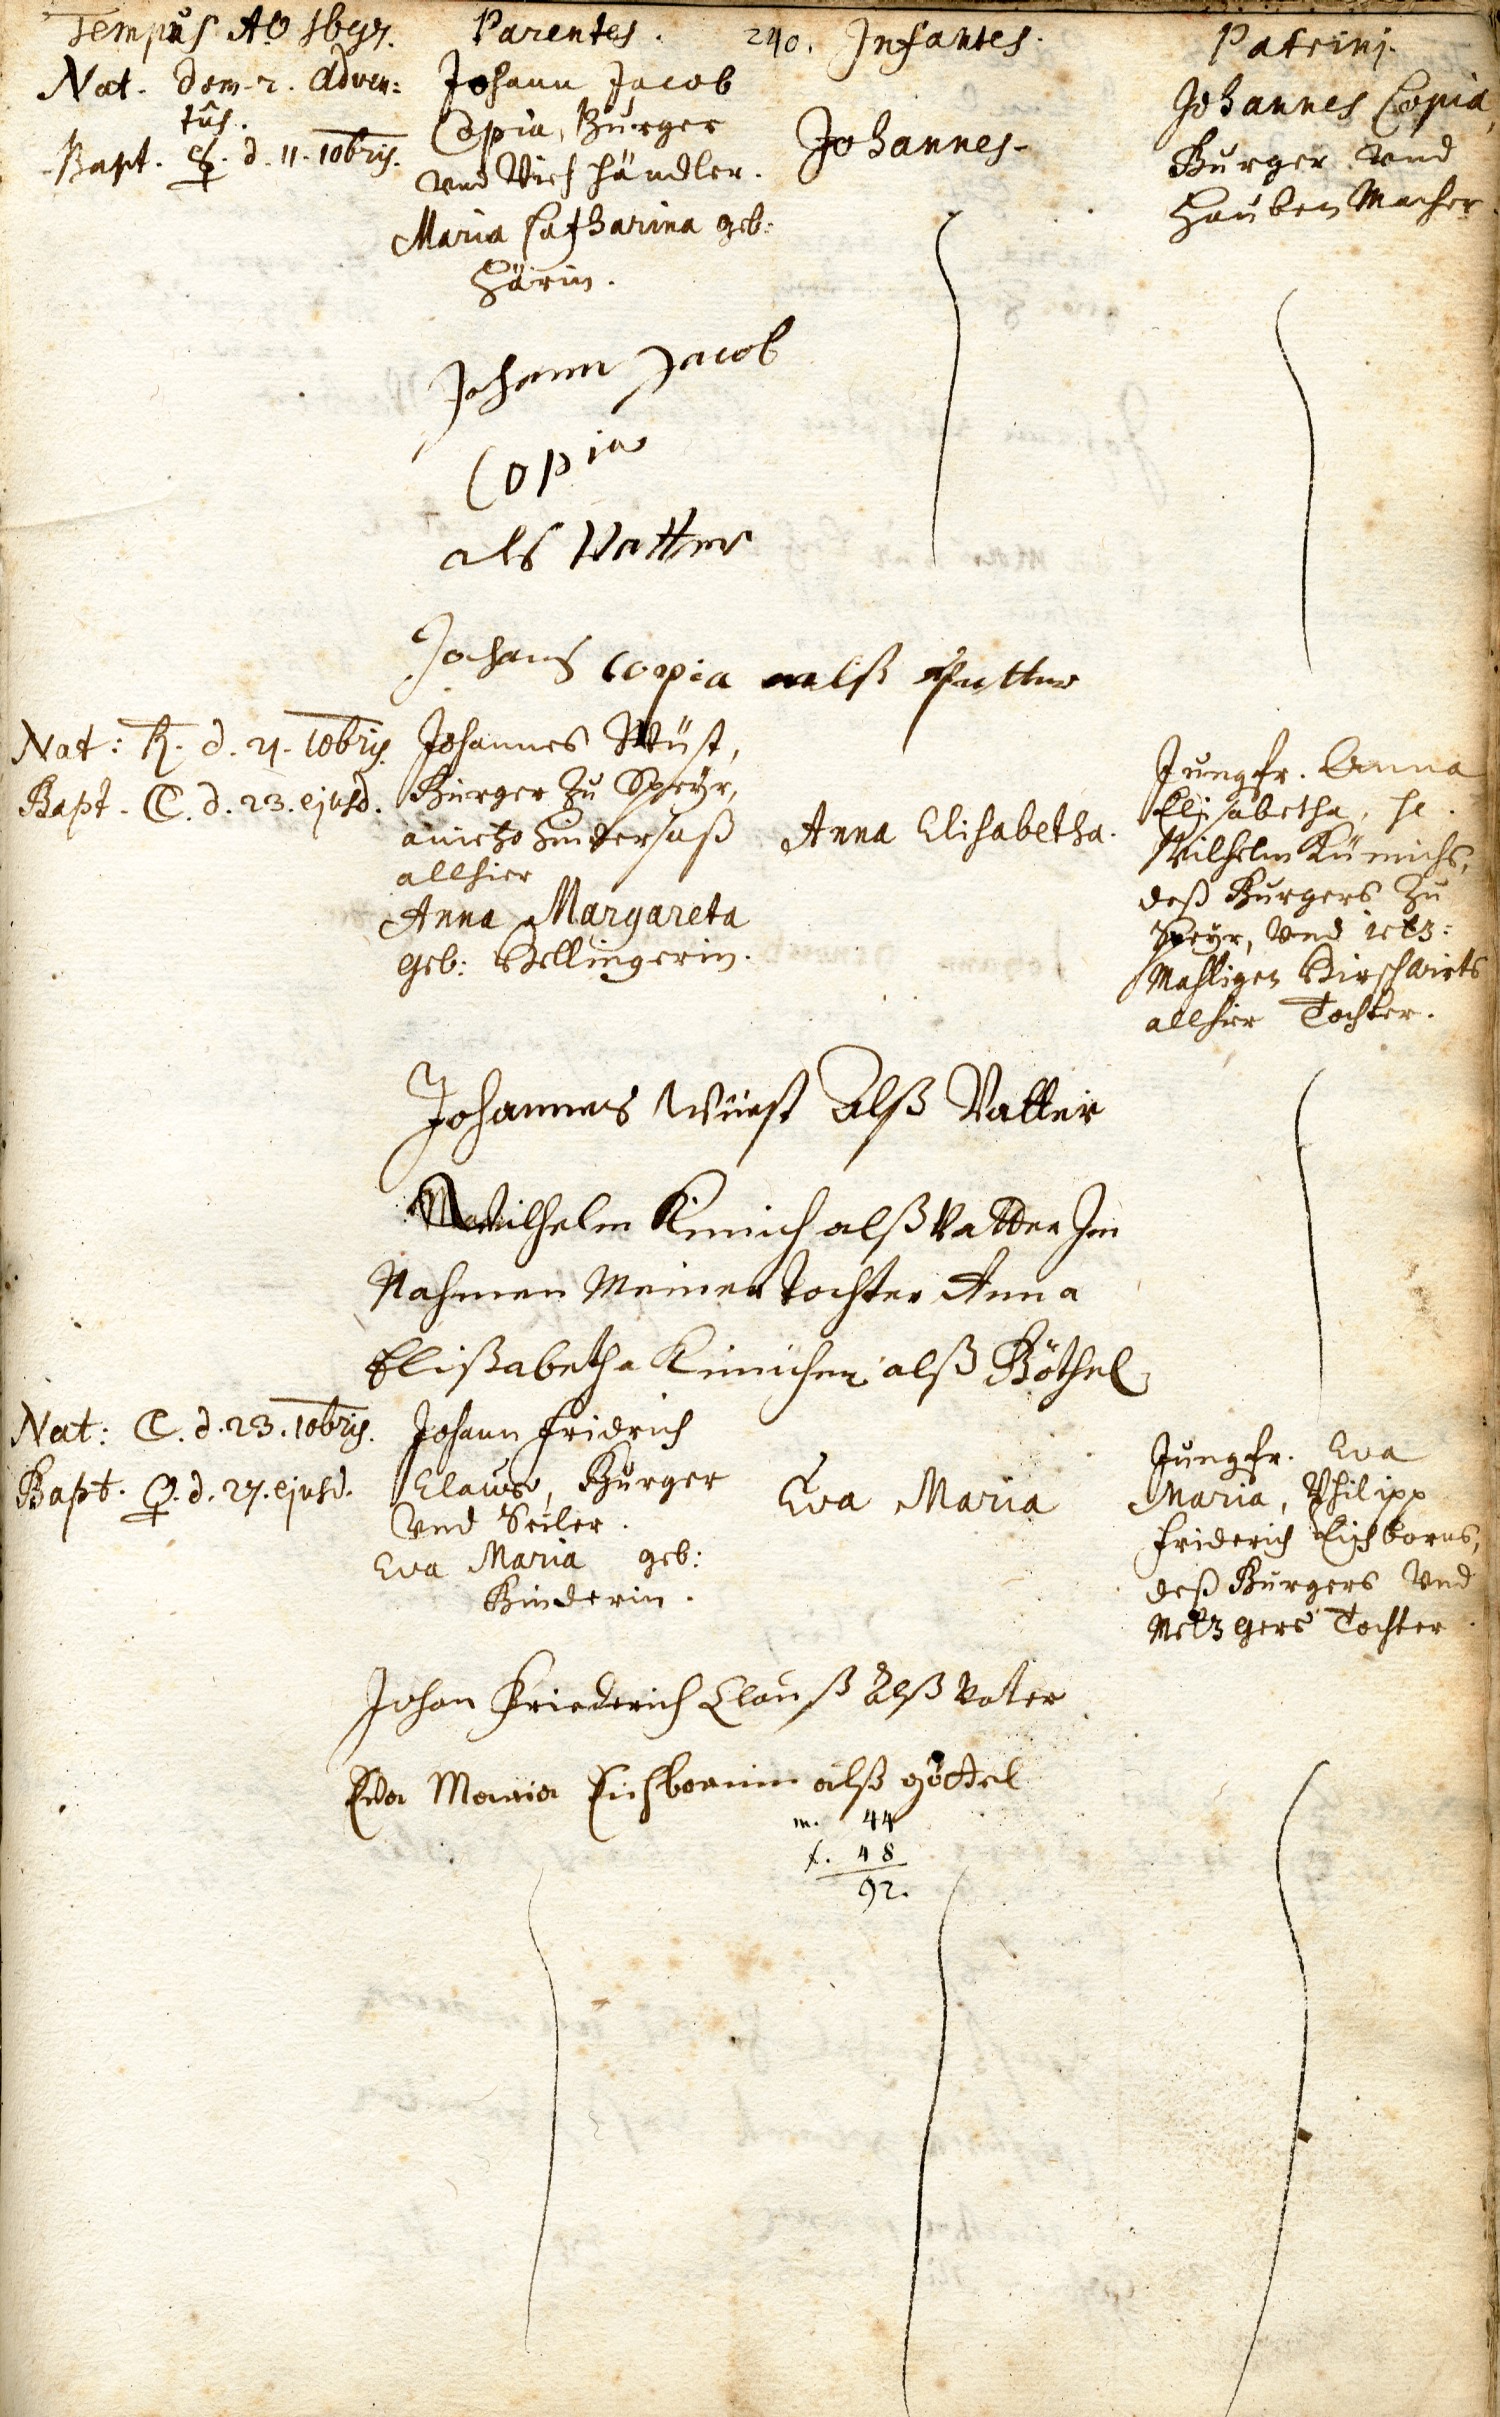 Tempus Aō 1695.
Parentes.
240.
Infantes.
Patrini.
Nat. Dom. 2. Adven=
tûs.
Bapt. ☿. d. 11. 10bris.
Johann Jacob
Copia, Burger
vnd Viehhändler.
Maria Catharina geb:
Härin.
Johannes.
Johannes Copia,
Burger vnd
Haubenmacher.
Johann Jacob
Copia
als Vatter
Johans Copia alß Pfetter
Nat: ♄. d. 21. 10bris.
Bapt. ☾. d. 23. ejusd.
Johannes Wüst,
Burger zu Speÿr,
anietzo Hindersaß
allhier
Anna Margareta
geb: Bellingerin.
Anna Elisabetha.
Jungfr. Anna
Elisabetha, H.
Wilhelm Kümichs,
deß Burgers zu
Speÿr, vnd ietz=
mahligen Hirschwirts
allhier Tochter.
Johannes Wüst Alß Vatter
Wilhelm Kimich alß Vatter Im
Nahmen Meiner Tochter Anna
Elißabetha Kimichen alß Göthel
Nat: ☾. d. 23. 10bris.
Bapt. ♀. d. 27. ejusd.
Johann Fridrich
Claus, Burger
vnd Seiler.
Eva Maria geb:
Binderin.
Eva Maria
Jungfr. Eva
Maria, Philipp
Friderich Eichborns,
deß Burgers vnd
Metzgers Tochter.
Johan Friederich Clauß Alß Vater
Eva Maria Eichbornin alß göttel
m. 44
f. 48
92.